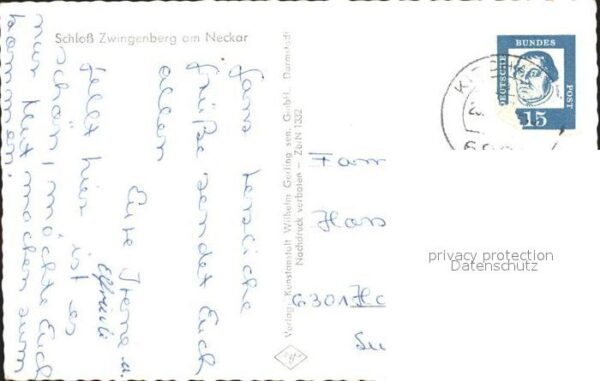 Schloß Zwingenberg am Neckar
Ganz herzliche
Grüße sendet Euch
allen
Eure Irene u.
gefällt hier ist es
schön, möchte Euch
nur Mut machen zum
kommen.
Verlag: Kunstanstalt Wilhelm Gerling sen. GmbH., Darmstadt
Nachdruck verboten - Zb/N 1332
DEUTSCHE
BUNDES
POST
15
Fam
Hans
6301 
privacy protection
Datenschutz